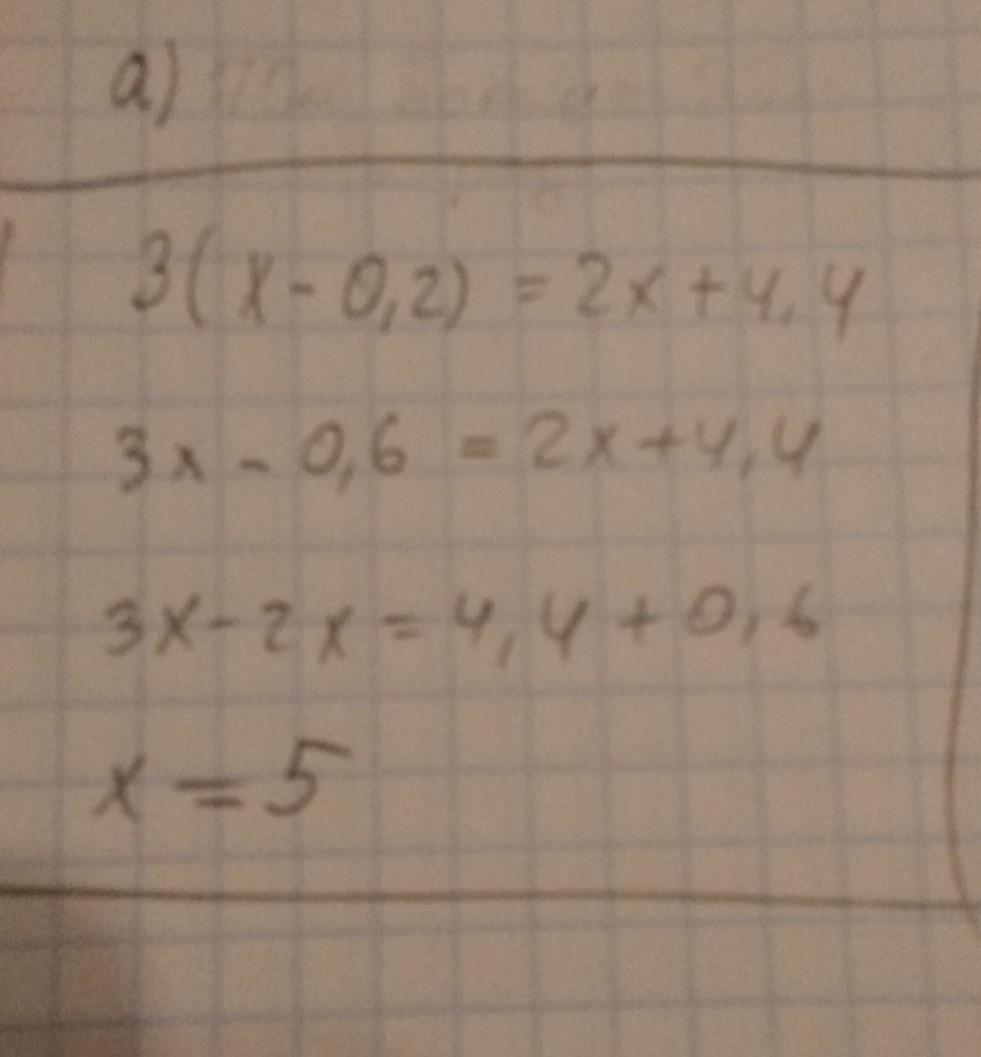 а)
3(x-0,2) = 2x+4,4
3x-0,6 = 2x+4,4
3x-2x=4,4+0,6
x=5